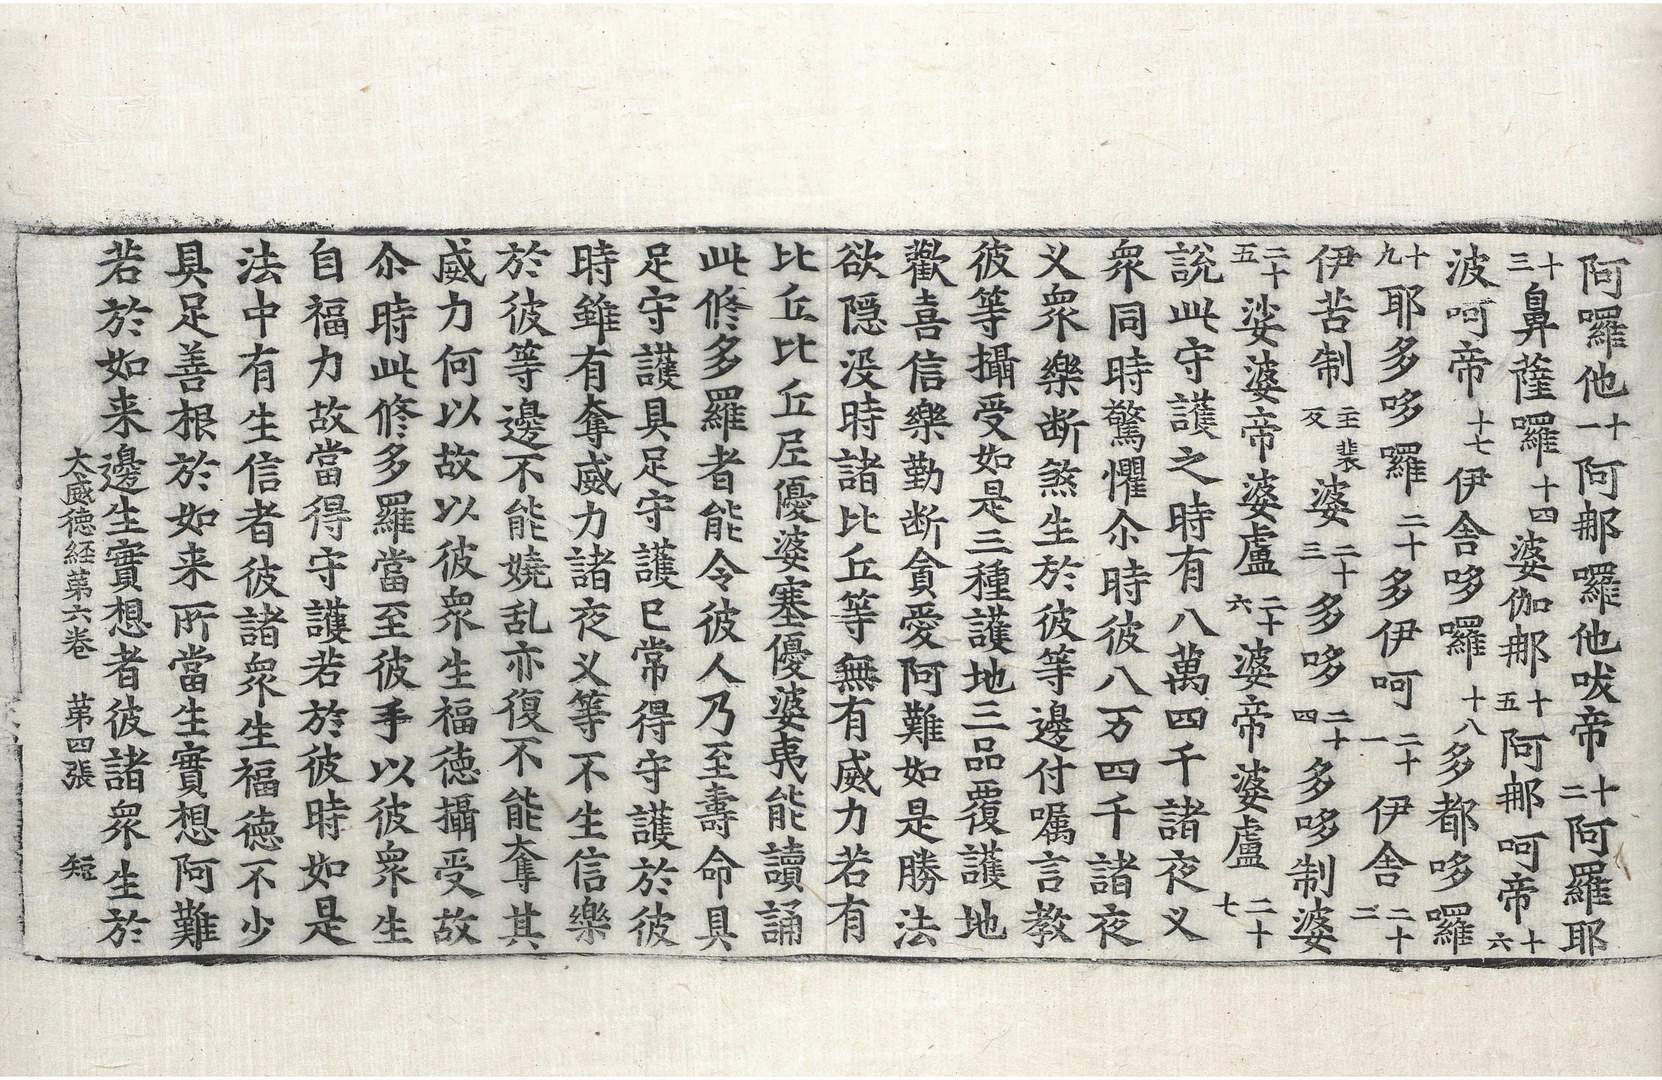 阿囉他十一阿那囉他呅帝十二阿羅耶
十三鼻薩囉十四婆伽那十五阿那呵帝十六
波呵帝十七伊舍哆囉十八多都哆囉
十九耶多哆囉二十多伊呵二十一伊舍二十二
伊苦制主裴反婆二十三多哆二十四多哆制婆
二十五娑婆帝婆盧二十六婆帝婆盧二十七
說此守護之時有八萬四千諸夜叉
衆同時驚懼尒時彼八万四千諸夜
叉衆樂断煞生於彼等邊付嘱言教
彼等攝受如是三種護地三品覆護地
歡喜信樂勤断貪愛阿難如是勝法
欲隠没時諸比丘等無有威力若有
比丘比丘尼優婆塞優婆夷能讀誦
此修多羅者能令彼人乃至壽命具
足守護具足守護已常得守護於彼
時雖有奪威力諸夜叉等不生信樂
於彼等邊不能嬈乱亦復不能奪其
威力何以故以彼衆生福德攝受故
尒時此修多羅當至彼手以彼衆生
自福力故當得守護若於彼時如是
法中有生信者彼諸衆生福德不少
具足善根於如来所當生實想阿難
若於如来邊生實想者彼諸衆生於
大威德経第六卷 第四張 短